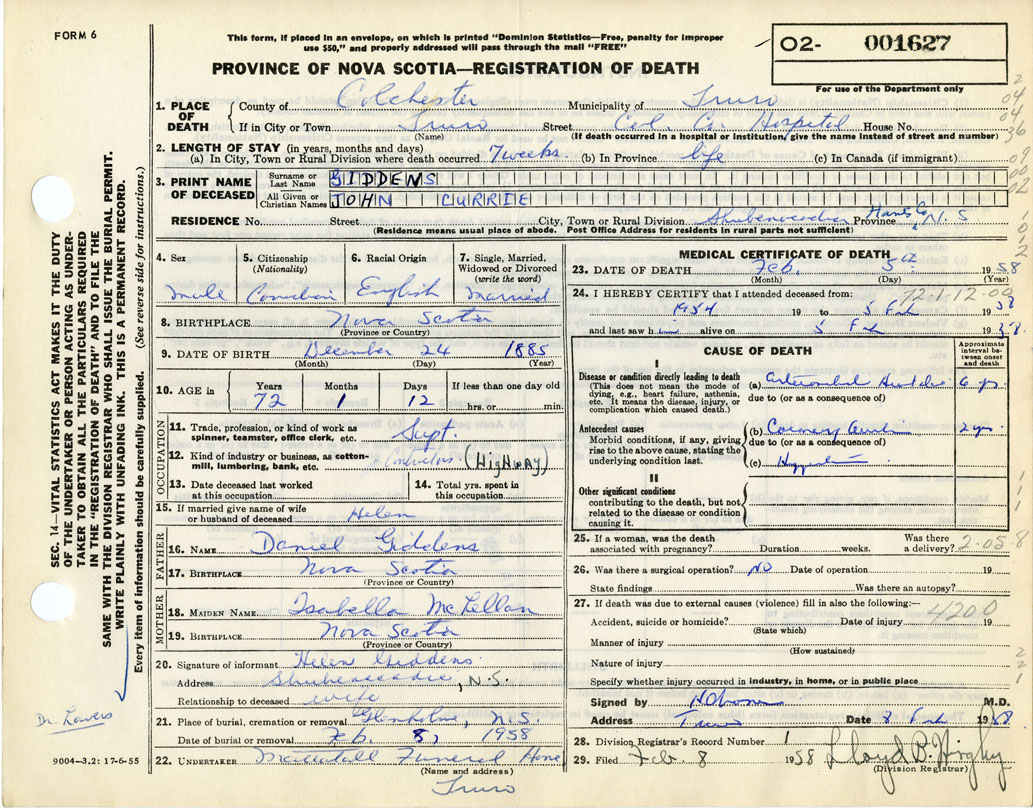 FORM 6
This form, if placed in an envelope, on which is printed "Dominion Statistics—Free, penalty for improper
use $50," and properly addressed will pass through the mail "FREE"
PROVINCE OF NOVA SCOTIA—REGISTRATION OF DEATH
O2- 001627
For use of the Department only
2
04
04
36
09
00
02
1. PLACE OF DEATH
County of Colchester Municipality of Truro
If in City or Town Truro Street Col. Co. Hospital House No.
(Name) (If death occurred in a hospital or institution, give the name instead of street and number)
2. LENGTH OF STAY (in years, months and days)
(a) In City, Town or Rural Division where death occurred 7 weeks. (b) In Province life (c) In Canada (if immigrant)
3. PRINT NAME OF DECEASED
Surname or Last Name GIDDENS
All Given or Christian Names JOHN CURRIE
RESIDENCE No. Street City, Town or Rural Division Shubenacadie Hants Co Province N.S
(Residence means usual place of abode. Post Office Address for residents in rural parts not sufficient)
4. Sex
Male
5. Citizenship
(Nationality)
Canadian
6. Racial Origin
English
7. Single, Married,
Widowed or Divorced
(write the word)
Married
8. BIRTHPLACE Nova Scotia
(Province or Country)
9. DATE OF BIRTH December 24 1885
(Month) (Day) (Year)
10. AGE in
Years Months Days If less than one day old
72 1 12 hrs. or min.
OCCUPATION
11. Trade, profession, or kind of work as
spinner, teamster, office clerk, etc. Supt.
12. Kind of industry or business, as cotton-
mill, lumbering, bank, etc. Contractors (HIGHWAY)
13. Date deceased last worked
at this occupation
14. Total yrs. spent in
this occupation
15. If married give name of wife
or husband of deceased Helen
FATHER
16. NAME Daniel Giddens
17. BIRTHPLACE Nova Scotia
(Province or Country)
MOTHER
18. MAIDEN NAME Isabella McLellan
19. BIRTHPLACE Nova Scotia
(Province or Country)
20. Signature of informant Helen Giddens.
Address Shubenacadie, N.S.
Relationship to deceased wife
21. Place of burial, cremation or removal Glenholme, N.S.
Date of burial or removal Feb. 8, 1958
22. UNDERTAKER Mattatall Funeral Home
(Name and address)
Truro
MEDICAL CERTIFICATE OF DEATH
23. DATE OF DEATH Feb. 5th 1958
(Month) (Day)
24. I HEREBY CERTIFY that I attended deceased from: 72.1.12.00
1954 19 to 5 Feb 1958
and last saw h alive on 5 Feb 1958
CAUSE OF DEATH
Approximate
interval be-
tween onset
and death
I
Disease or condition directly leading to death
(This does not mean the mode of
dying, e.g., heart failure, asthenia,
etc. It means the disease, injury, or
complication which caused death.)
(a) 6 yrs
due to (or as a consequence of)
Antecedent causes
Morbid conditions, if any, giving
rise to the above cause, stating the
underlying condition last.
(b) Coronary 2 yrs
due to (or as a consequence of)
(c)
II
Other significant conditions
contributing to the death, but not
related to the disease or condition
causing it.
25. If a woman, was the death
associated with pregnancy? Duration weeks. Was there
a delivery? 2-05-8
26. Was there a surgical operation? NO Date of operation 19
State findings Was there an autopsy?
27. If death was due to external causes (violence) fill in also the following:— 4200
Accident, suicide or homicide? Date of injury 19
(State which)
Manner of injury
(How sustained)
Nature of injury
Specify whether injury occurred in industry, in home, or in public place
Signed by M.D.
Address Truro Date 8 Feb 1958
28. Division Registrar's Record Number 1
29. Filed Feb. 8 1958 Lloyd B. Higby
(Division Registrar)
SEC. 14—VITAL STATISTICS ACT MAKES IT THE DUTY
OF THE UNDERTAKER OR PERSON ACTING AS UNDER-
TAKER TO OBTAIN ALL THE PARTICULARS REQUIRED
IN THE "REGISTRATION OF DEATH" AND TO FILE THE
SAME WITH THE DIVISION REGISTRAR WHO SHALL ISSUE THE BURIAL PERMIT.
WRITE PLAINLY WITH UNFADING INK. THIS IS A PERMANENT RECORD.
Every item of information should be carefully supplied. (See reverse side for instructions.)
9004—3.2: 17-6-55